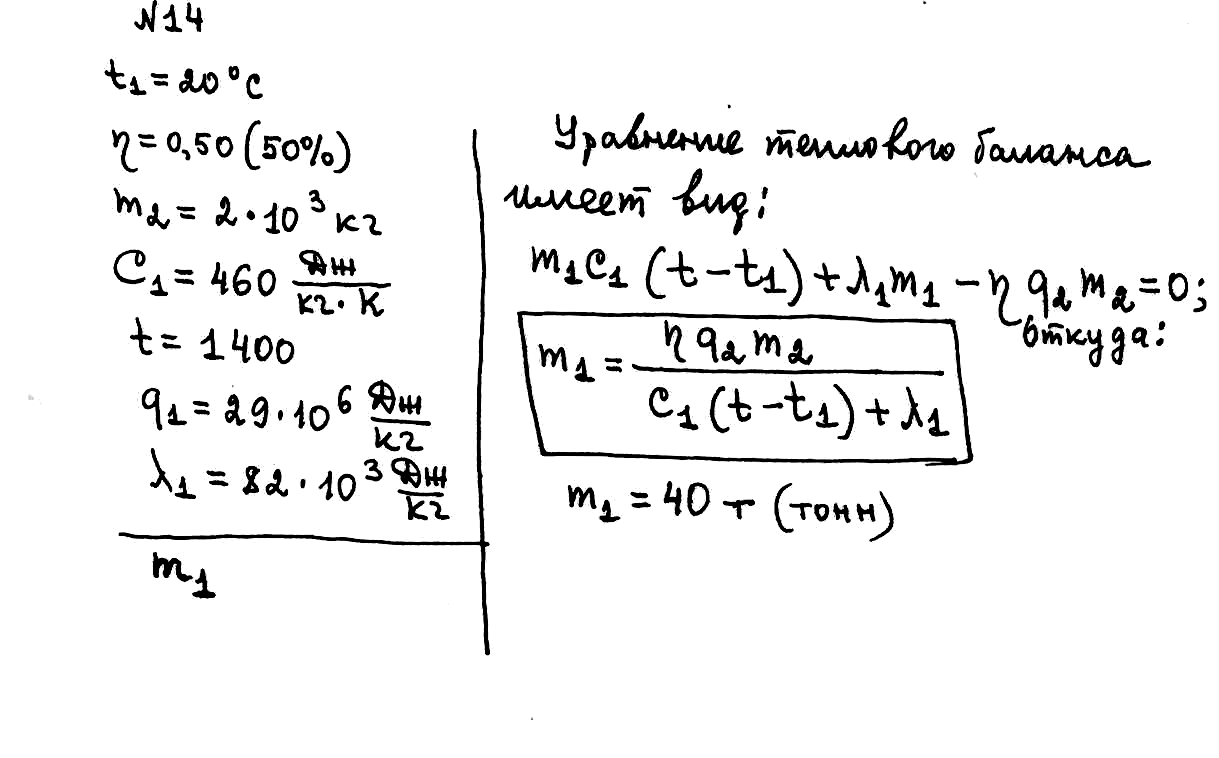 N14
t₁ = 20°C
η = 0,50 (50%)
m₂ = 2·10³ кг
C₁ = 460 Дж/кг·К
t = 1400
q₁ = 29·10⁶ Дж/кг
λ₁ = 82·10³ Дж/кг
m₁
Уравнение теплового баланса
имеет вид:
m₁c₁(t-t₁)+λ₁m₁-ηq₂m₂=0;
откуда:
m₁ = ηq₂m₂/c₁(t-t₁)+λ₁
m₁ = 40 т (тонн)